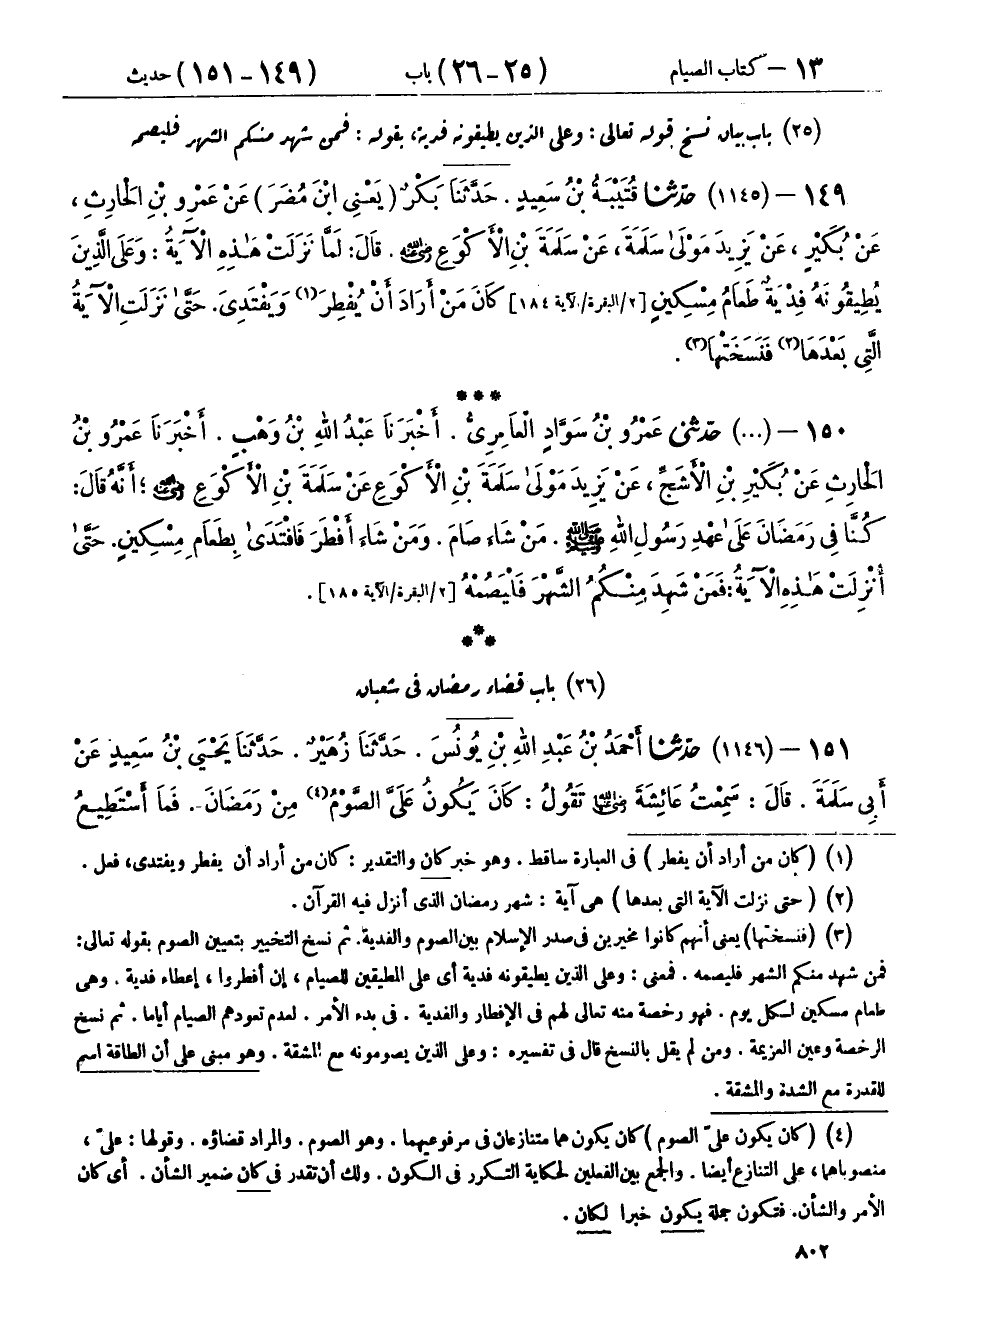 ١٣ – كتاب الصيام (٢٥ – ٢٦) باب (١٤٩ – ١٥١) حديث
(٢٥) باب بيان نسخ قوله تعالى : وعلى الذين يطيقونه فدية، بقوله : فمن شهد منكم الشهر فليصمه
١٤٩ – (١١٤٥) حَدَّثَنَا قُتَيْبَةُ بْنُ سَعِيدٍ . حَدَّثَنَا بَكْرٌ ( يَعْنِي ابْنَ مُضَرَ ) عَنْ عَمْرِو بْنِ الْحَارِثِ ،
عَنْ بُكَيْرٍ ، عَنْ يَزِيدَ مَوْلَىٰ سَلَمَةَ، عَنْ سَلَمَةَ بْنِ الْأَكْوَعِ رضي الله عنه . قَالَ: لَمَّا نَزَلَتْ هَٰذِهِ الْآيَةُ : وَعَلَى الَّذِينَ
يُطِيقُونَهُ فِدْيَةٌ طَعَامُ مِسْكِينٍ [٢/البقرة/الآية ١٨٤] كَانَ مَنْ أَرَادَ أَنْ يُفْطِرَ(١) وَيَفْتَدِىَ. حَتَّىٰ نَزَلَتِ الْآيَةُ
الَّتِي بَعْدَهَا(٢) فَنَسَخَتْهَا(٣) .
***
١٥٠ – (...) حَدَّثَنِي عَمْرُو بْنُ سَوَّادٍ الْعَامِرِىُّ . أَخْبَرَنَا عَبْدُ اللهِ بْنُ وَهْبٍ . أَخْبَرَنَا عَمْرُو بْنُ
الْحَارِثِ عَنْ بُكَيْرِ بْنِ الْأَشَجِّ ، عَنْ يَزِيدَ مَوْلَىٰ سَلَمَةَ بْنِ الْأَكْوَعِ عَنْ سَلَمَةَ بْنِ الْأَكْوَعِ رضي الله عنه ؛ أَنَّهُ قَالَ:
كُنَّا فِى رَمَضَانَ عَلَىٰ عَهْدِ رَسُولِ اللهِ ﷺ . مَنْ شَاءَ صَامَ . وَمَنْ شَاءَ أَفْطَرَ فَافْتَدَىٰ بِطَعَامِ مِسْكِينٍ. حَتَّىٰ
أُنْزِلَتْ هَٰذِهِ الْآيَةُ: فَمَنْ شَهِدَ مِنْكُمُ الشَّهْرَ فَلْيَصُمْهُ [٢/البقرة/الآية ١٨٥] .
***
(٢٦) باب قضاء رمضان فى شعبان
١٥١ – (١١٤٦) حَدَّثَنَا أَحْمَدُ بْنُ عَبْدِ اللهِ بْنِ يُونُسَ . حَدَّثَنَا زُهَيْرٌ . حَدَّثَنَا يَحْيَى بْنُ سَعِيدٍ عَنْ
أَبِى سَلَمَةَ . قَالَ : سَمِعْتُ عَائِشَةَ رضي الله عنها تَقُولُ : كَانَ يَكُونُ عَلَىَّ الصَّوْمُ(٤) مِنْ رَمَضَانَ . فَمَا أَسْتَطِيعُ
(١) ( كان من أراد أن يفطر ) فى العبارة ساقط . وهو خبر كان والتقدير : كان من أراد أن يفطر ويفتدى، فعل .
(٢) ( حتى نزلت الآية التى بعدها ) هى آية : شهر رمضان الذى أنزل فيه القرآن .
(٣) (فنسختها) يعنى أنهم كانوا مخيرين فى صدر الإسلام بين الصوم والفدية. ثم نسخ التخيير بتعيين الصوم بقوله تعالى:
فمن شهد منكم الشهر فليصمه . فمعنى : وعلى الذين يطيقونه فدية أى على المطيقين للصيام ، إن أفطروا ، إعطاء فدية . وهى
طعام مسكين لكل يوم . فهو رخصة منه تعالى لهم فى الإفطار والفدية . فى بدء الأمر . لعدم تعودهم الصيام أياما . ثم نسخ
الرخصة وعين العزيمة . ومن لم يقل بالنسخ قال فى تفسيره : وعلى الذين يصومونه مع المشقة . وهو مبنى على أن الطاقة اسم
للقدرة مع الشدة والمشقة .
(٤) ( كان يكون علىّ الصوم ) كان يكون هما متنازعان فى مرفوعيهما . وهو الصوم . والمراد قضاؤه . وقولها : علىّ ،
منصوباهما ، على التنازع أيضا . والجمع بين الفعلين لحكاية التكرر فى الكون . ولك أن تقدر فى كان ضمير الشأن . أى كان
الأمر والشأن. فتكون جملة يكون خبرا لكان .
٨٠٢